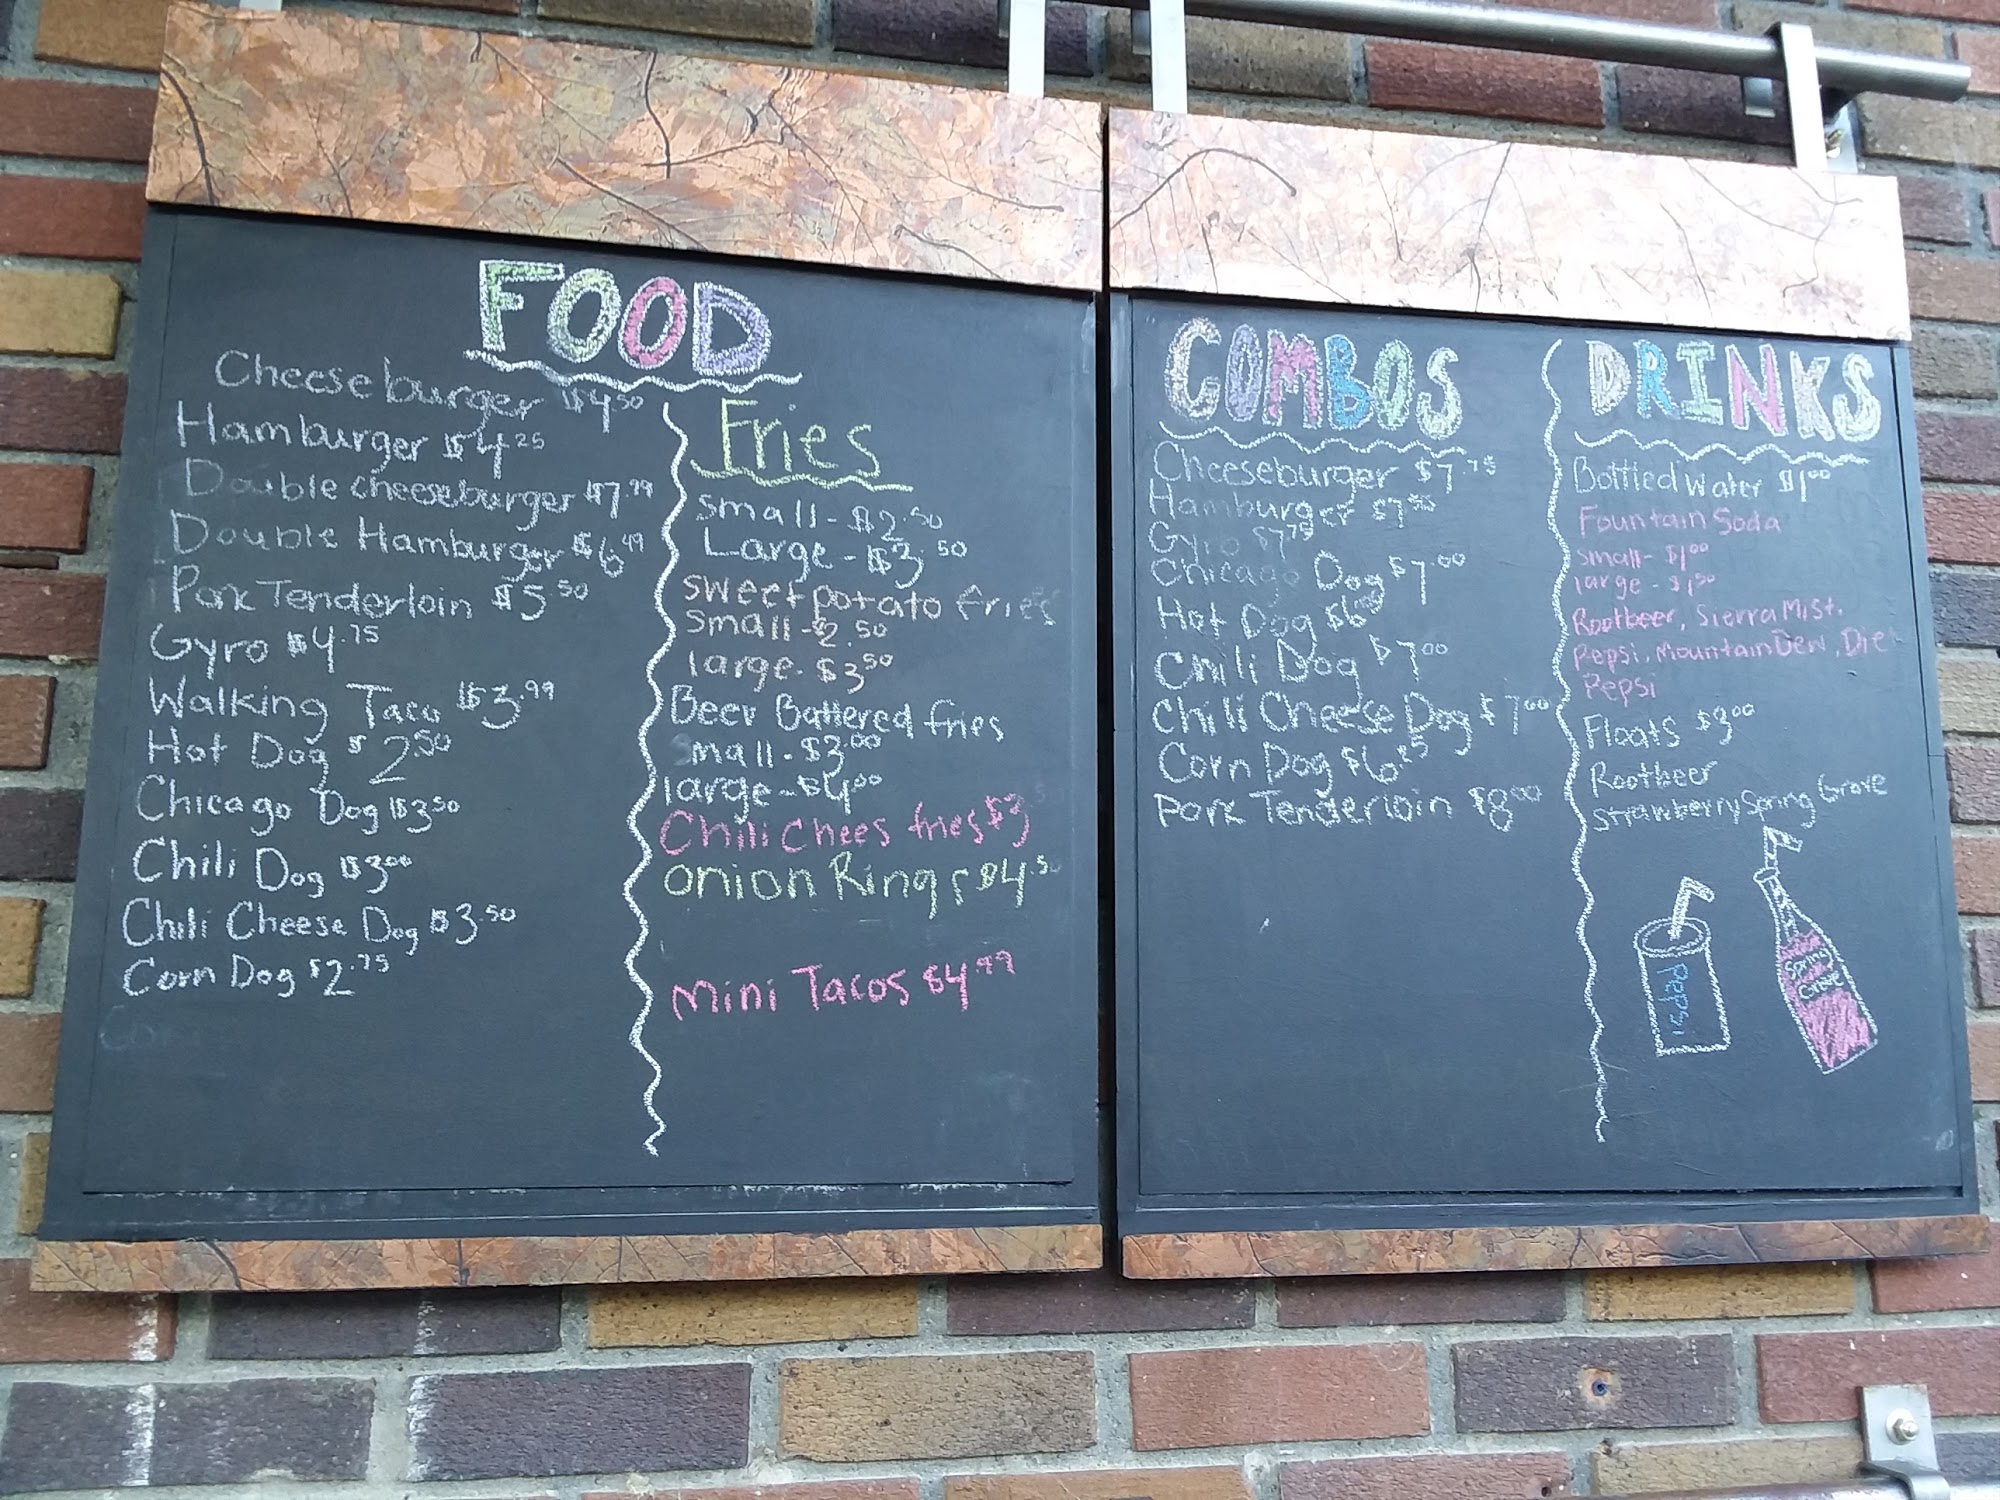 FOOD
Cheeseburger $4.50
Hamburger $4.25
Double cheeseburger $7.99
Double Hamburger $6.49
Pork Tenderloin $5.50
Gyro $4.75
Walking Taco $3.99
Hot Dog $2.50
Chicago Dog $3.50
Chili Dog $3.00
Chili Cheese Dog $3.50
Corn Dog $2.75
Fries
Small - $2.50
Large - $3.50
sweet potato fries
Small - 2.50
large - $3.50
Beer Battered fries
Small - $3.00
large - $4.00
Chili Chees fries $3
Onion Rings $4.50
Mini Tacos $4.99
COMBOS
Cheeseburger $7.75
Hamburger
Gyro $7.75
Chicago Dog $7.00
Hot Dog
Chili Dog $7.00
Chili Cheese Dog $7.00
Corn Dog $6.25
Pork Tenderloin $8.00
DRINKS
Bottled Water $1.00
Fountain Soda
Small - $1.00
large - $1.50
Rootbeer, Sierra Mist,
Pepsi, Mountain Dew, Diet
Pepsi
Floats $3.00
Rootbeer
Strawberry Spring Grove
Pepsi
Spring
Grove